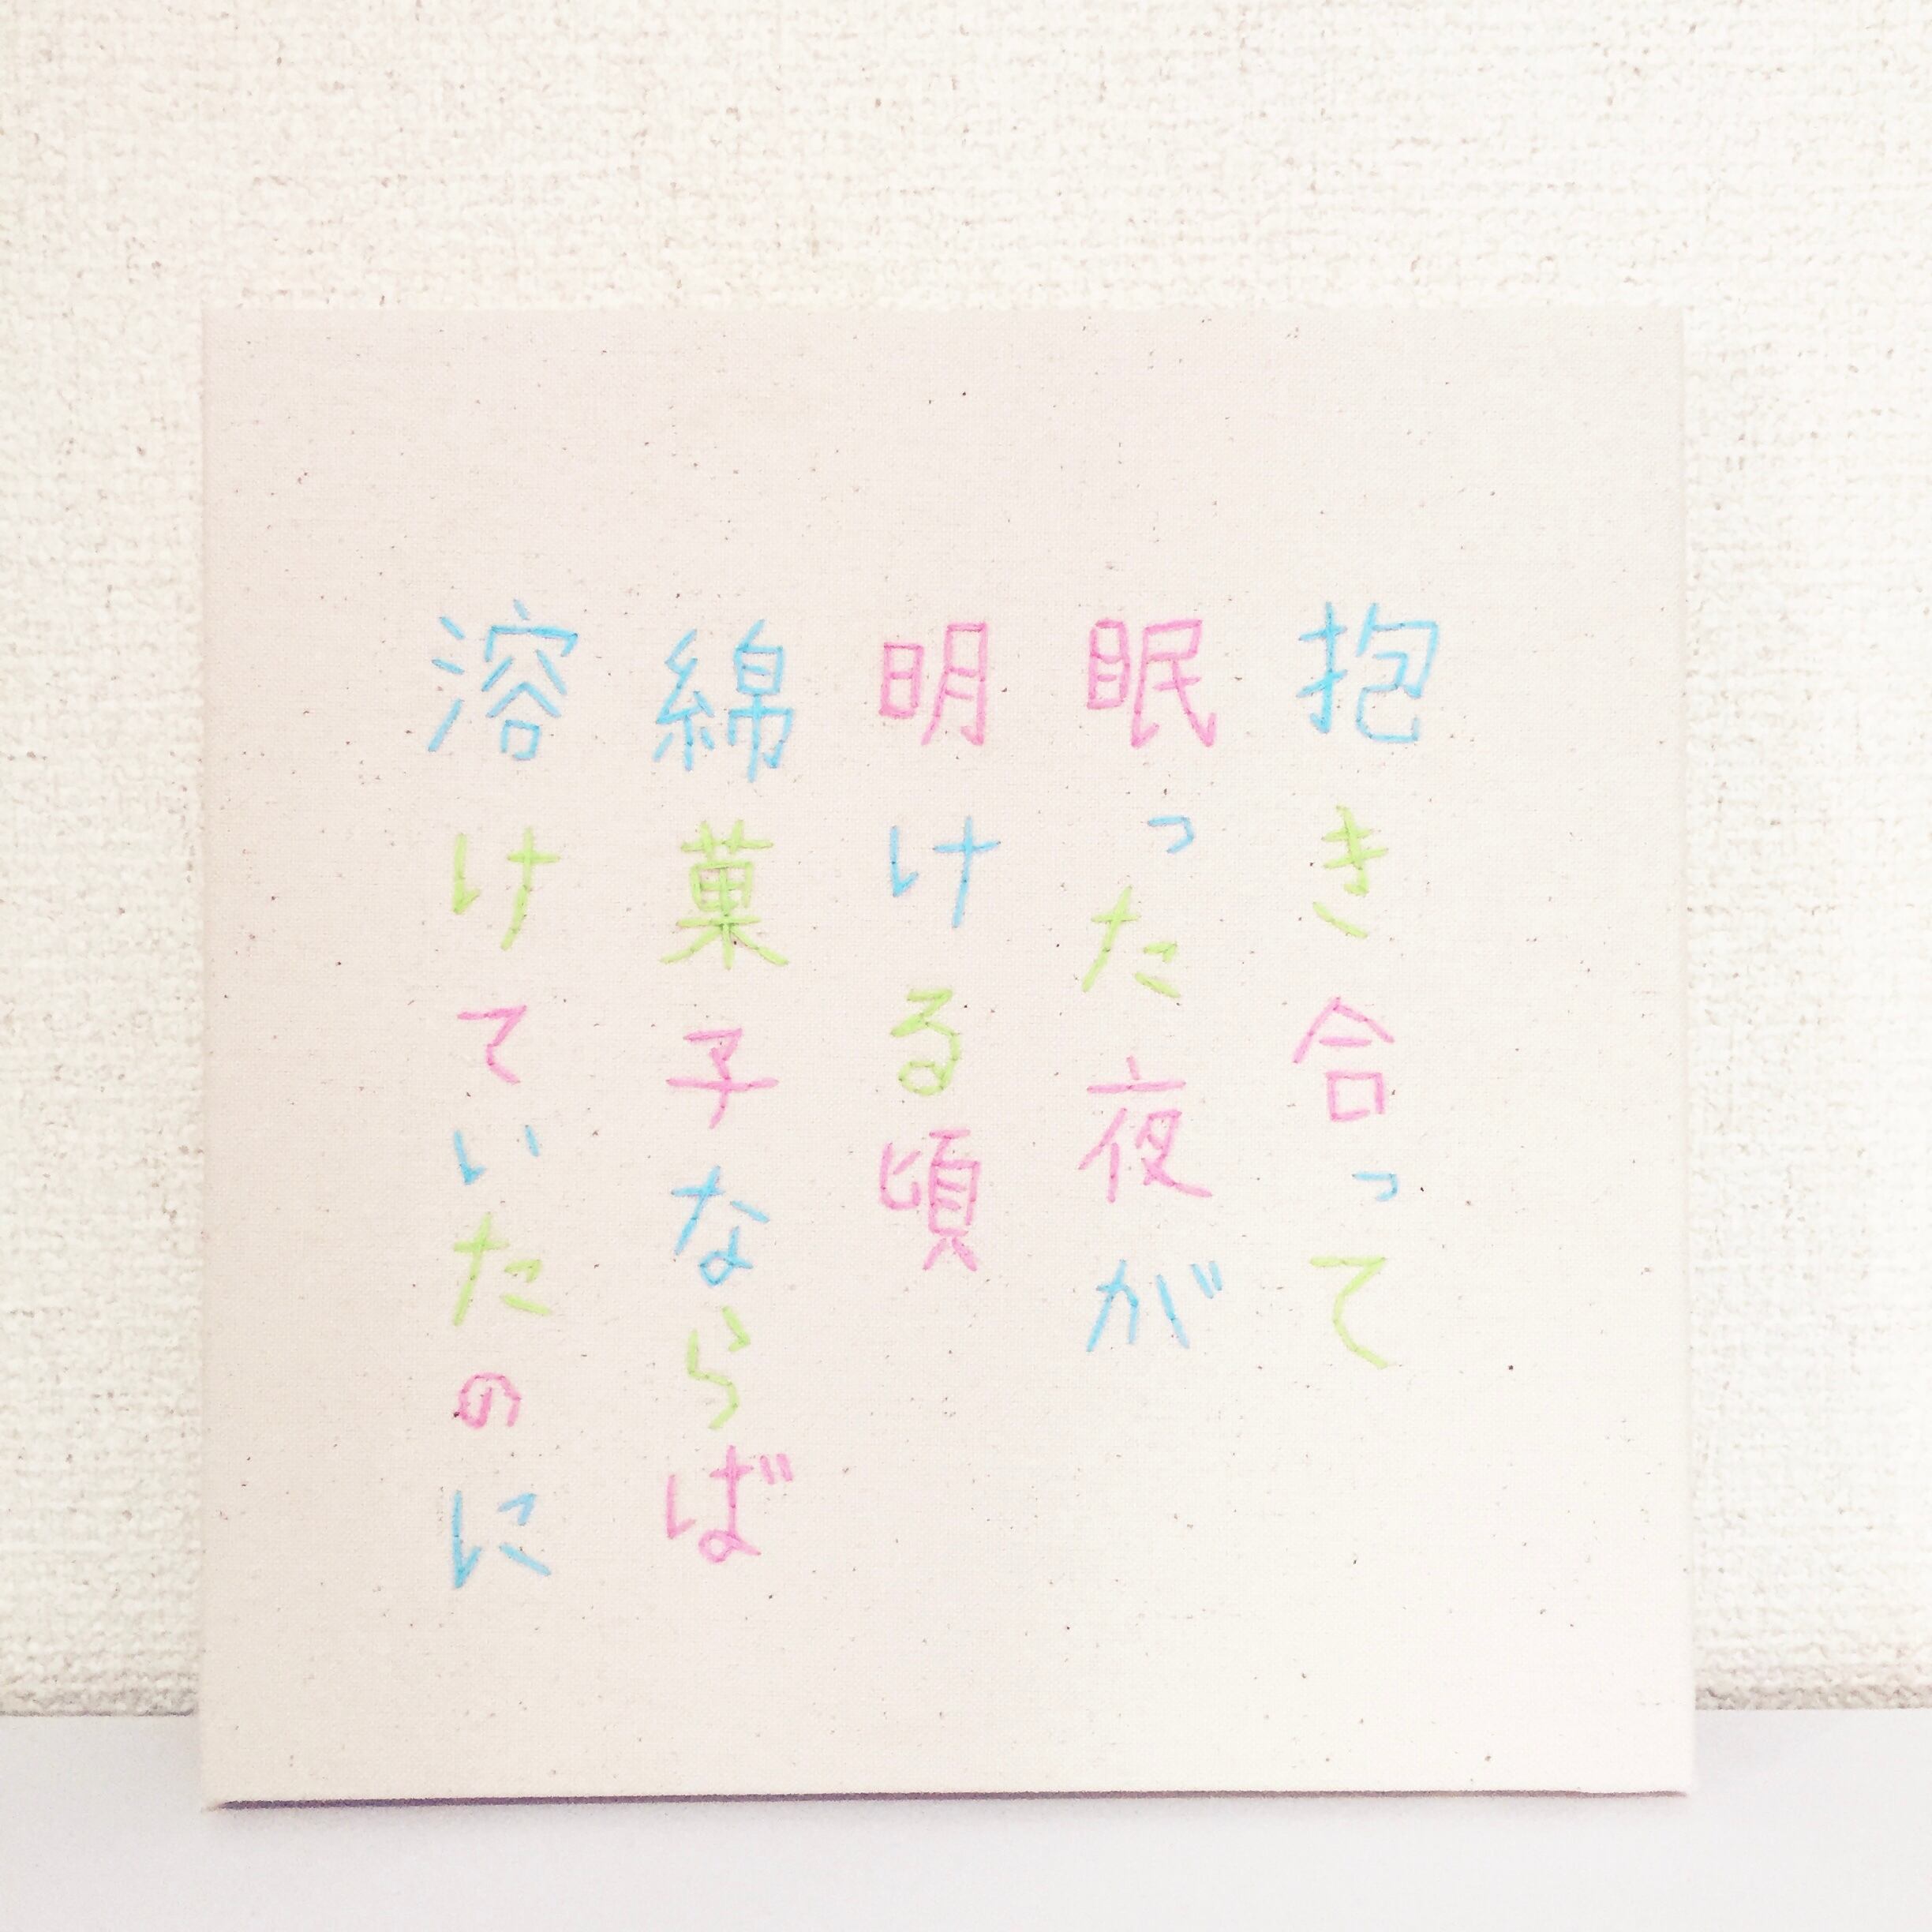 抱き合って
眠った夜が
明ける頃
綿菓子ならば
溶けていたのに